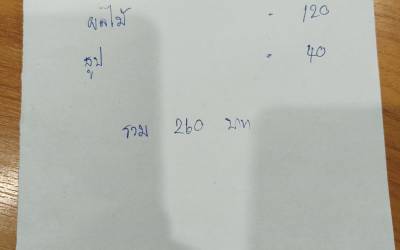 ผลไม้ - 120
สูป - 40
รวม 260 บาท